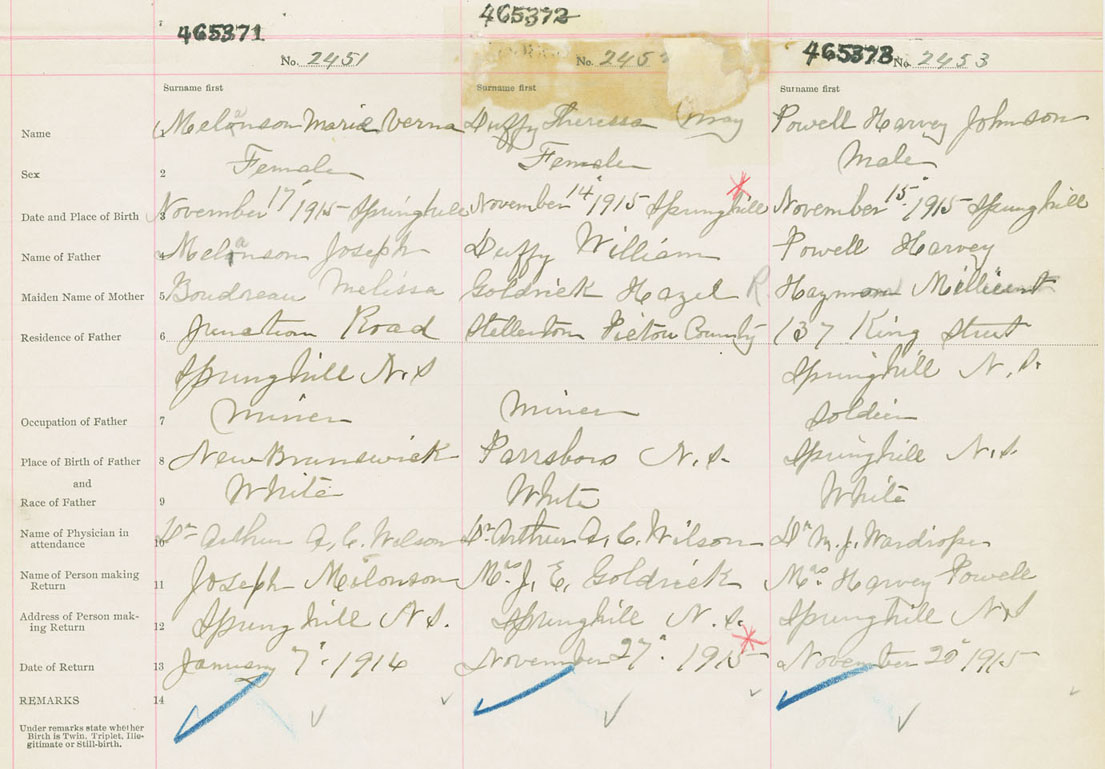 465371 465372 465373
No. 2451 No. 245 No. 2453
Surname first Surname first Surname first
Name Melanson Marie Verna Duffy Theressa May Powell Harvey Johnson
Sex 2 Female Female Male
Date and Place of Birth 3 November 17" 1915 Springhill November 14" 1915 Springhill November 15" 1915 Springhill
Name of Father 4 Melanson Joseph Duffy William Powell Harvey
Maiden Name of Mother 5 Boudreau Melissa Goldrick Hazel R. Haymond Millicent
Residence of Father 6 Junction Road Stellerton Pictou County 137 King Street
Springhill N.S Springhill N.S.
Occupation of Father 7 Miner Miner Soldier
Place of Birth of Father 8 New Brunswick Parrsboro N.S. Springhill N.S.
and
Race of Father 9 White White White
Name of Physician in
attendance 10 Dr Arthur A, C. Wilson Dr Arthur A, C. Wilson Dr M. J. Wardrope
Name of Person making
Return 11 Joseph Melonson Mrs J, E, Goldrick Mrs Harvey Powell
Address of Person mak-
ing Return 12 Springhill N.S. Springhill N.S. Springhill N.S
Date of Return 13 January 7" 1916 November 27" 1915 November 20" 1915
REMARKS 14
Under remarks state whether
Birth is Twin, Triplet, Ille-
gitimate or Still-birth.